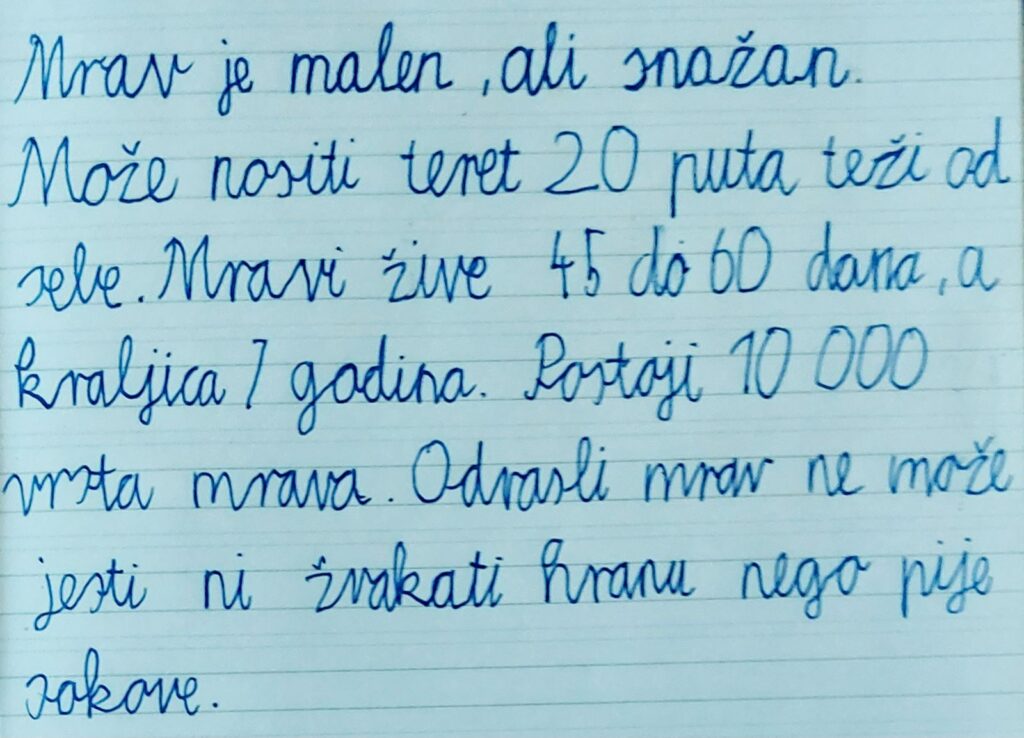 Mrav je malen, ali snažan.
Može nositi teret 20 puta teži od
sebe. Mravi žive 45 do 60 dana, a
kraljica 7 godina. Postoji 10 000
vrsta mrava. Odrasli mrav ne može
jesti ni žvakati hranu nego pije
sokove.